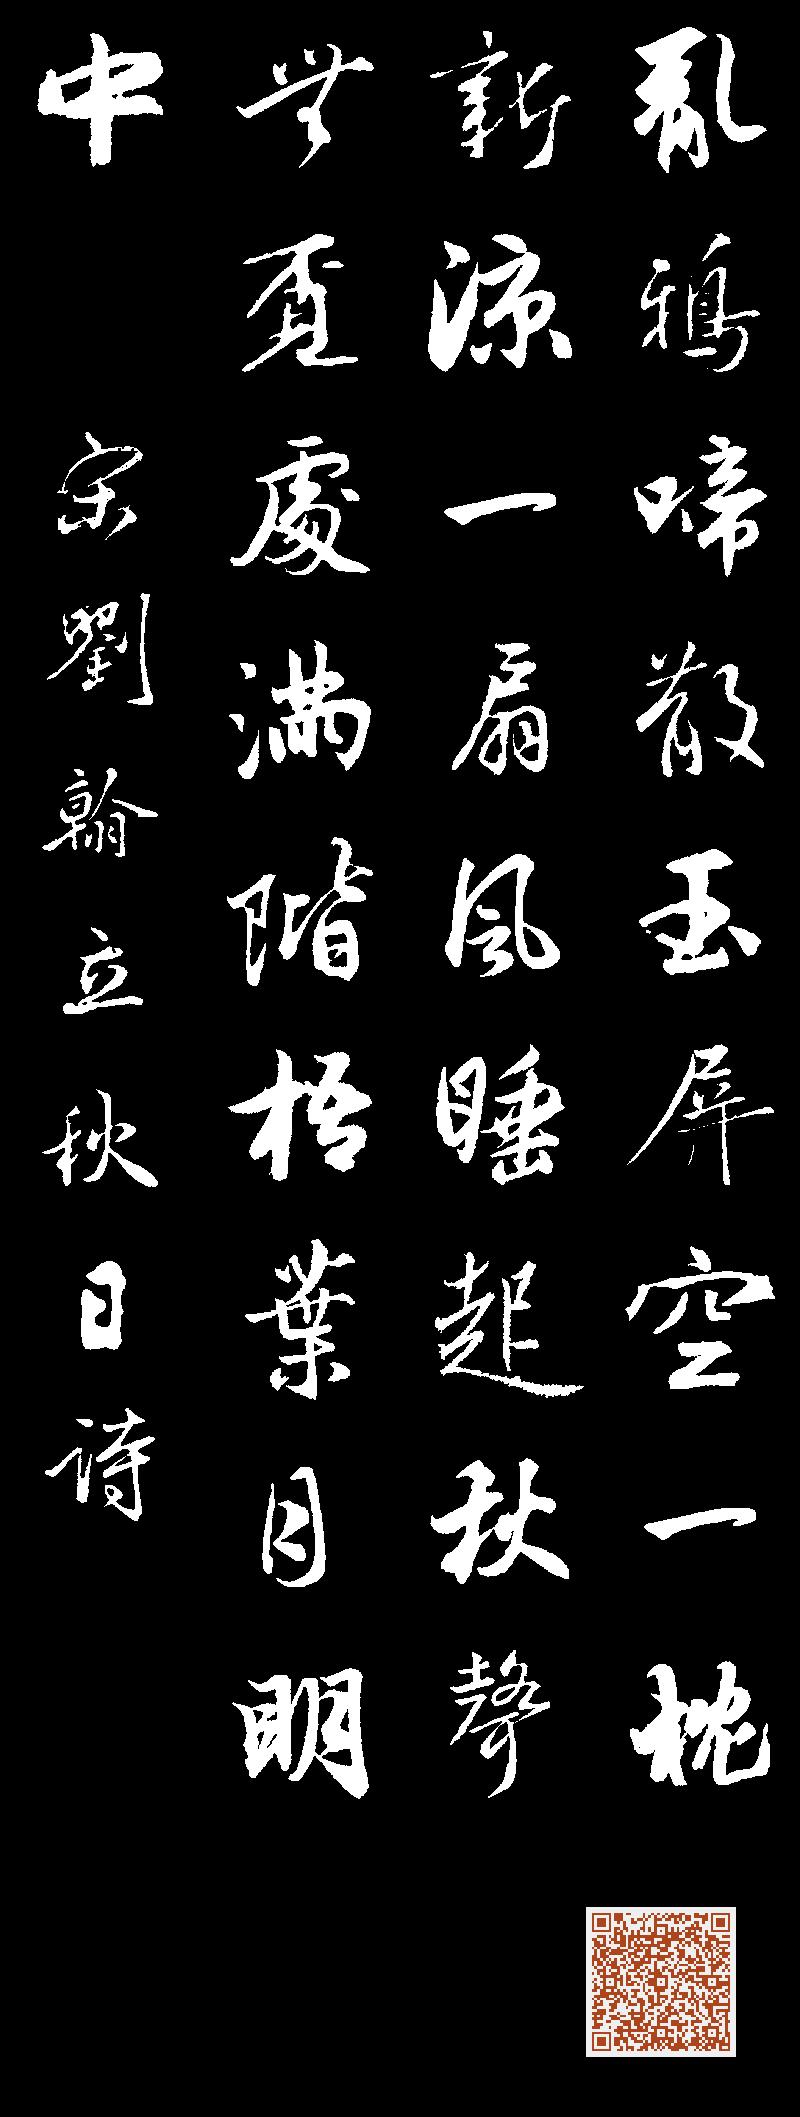 亂鴉啼散玉屏空一枕
新涼一扇風睡起秋聲
無覓處滿階梧葉月明
中
宋劉翰立秋日詩